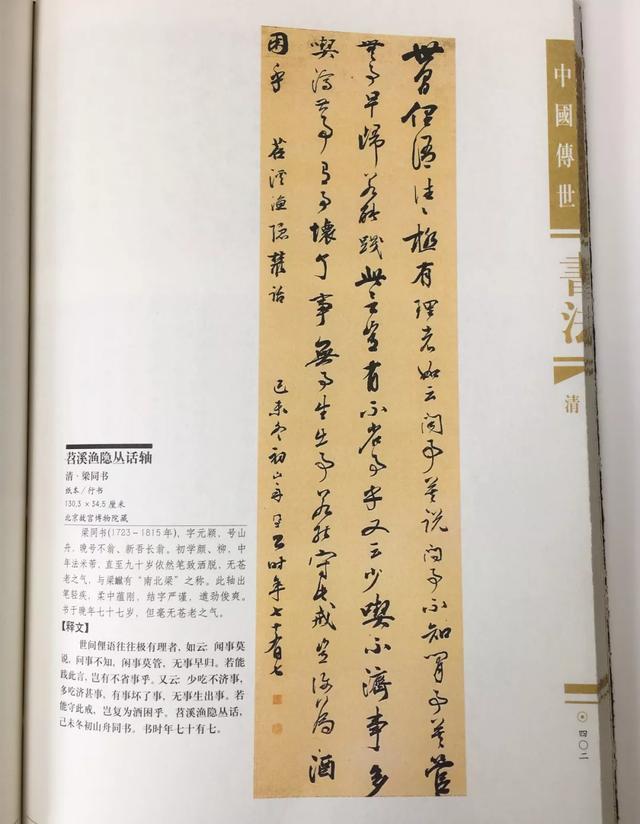 世間俚語往往極有理者如云聞事莫說問事不知閒事莫管
無事早歸若能踐此言豈有不省事乎又云少喫不濟事多
喫濟甚事有事壞了事無事生出事若能守此戒豈復為酒
困乎 苕溪漁隱叢話
己未冬初山舟同書時年七十有七
中國傳世
書法
清
四〇二
苕溪渔隐丛话轴
清·梁同书
纸本/行书
130.3×34.5厘米
北京故宫博物院藏
梁同书(1723-1815年),字元颖,号山
舟,晚号不翁、新吾长翁。初学颜、柳,中
年法米芾,直至九十岁依然笔致洒脱,无苍
老之气,与梁巘有“南北梁”之称。此轴出
笔轻疾,柔中蕴刚,结字严谨,遒劲俊爽。
书于晚年七十七岁,但毫无苍老之气。
【释文】
世间俚语往往极有理者,如云:闻事莫
说,问事不知,闲事莫管,无事早归。若能
践此言,岂有不省事乎。又云:少吃不济事,
多吃济甚事,有事坏了事,无事生出事。若
能守此戒,岂复为酒困乎。苕溪渔隐丛话,
己未冬初山舟同书。书时年七十有七。